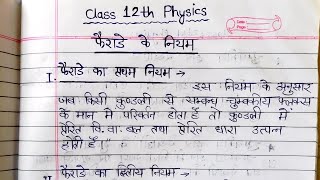 Class 12th Physics
फैराडे के नियम
I. फैराडे का प्रथम नियम →
इस नियम के अनुसार
जब किसी कुण्डली से सम्बन्ध चुम्बकीय फ्लक्स
के मान में परिवर्तन होता है तो कुण्डली में
प्रेरित वि. वा. बल तथा प्रेरित धारा उत्पन्न
होती है।
II. फैराडे का द्वितीय नियम →